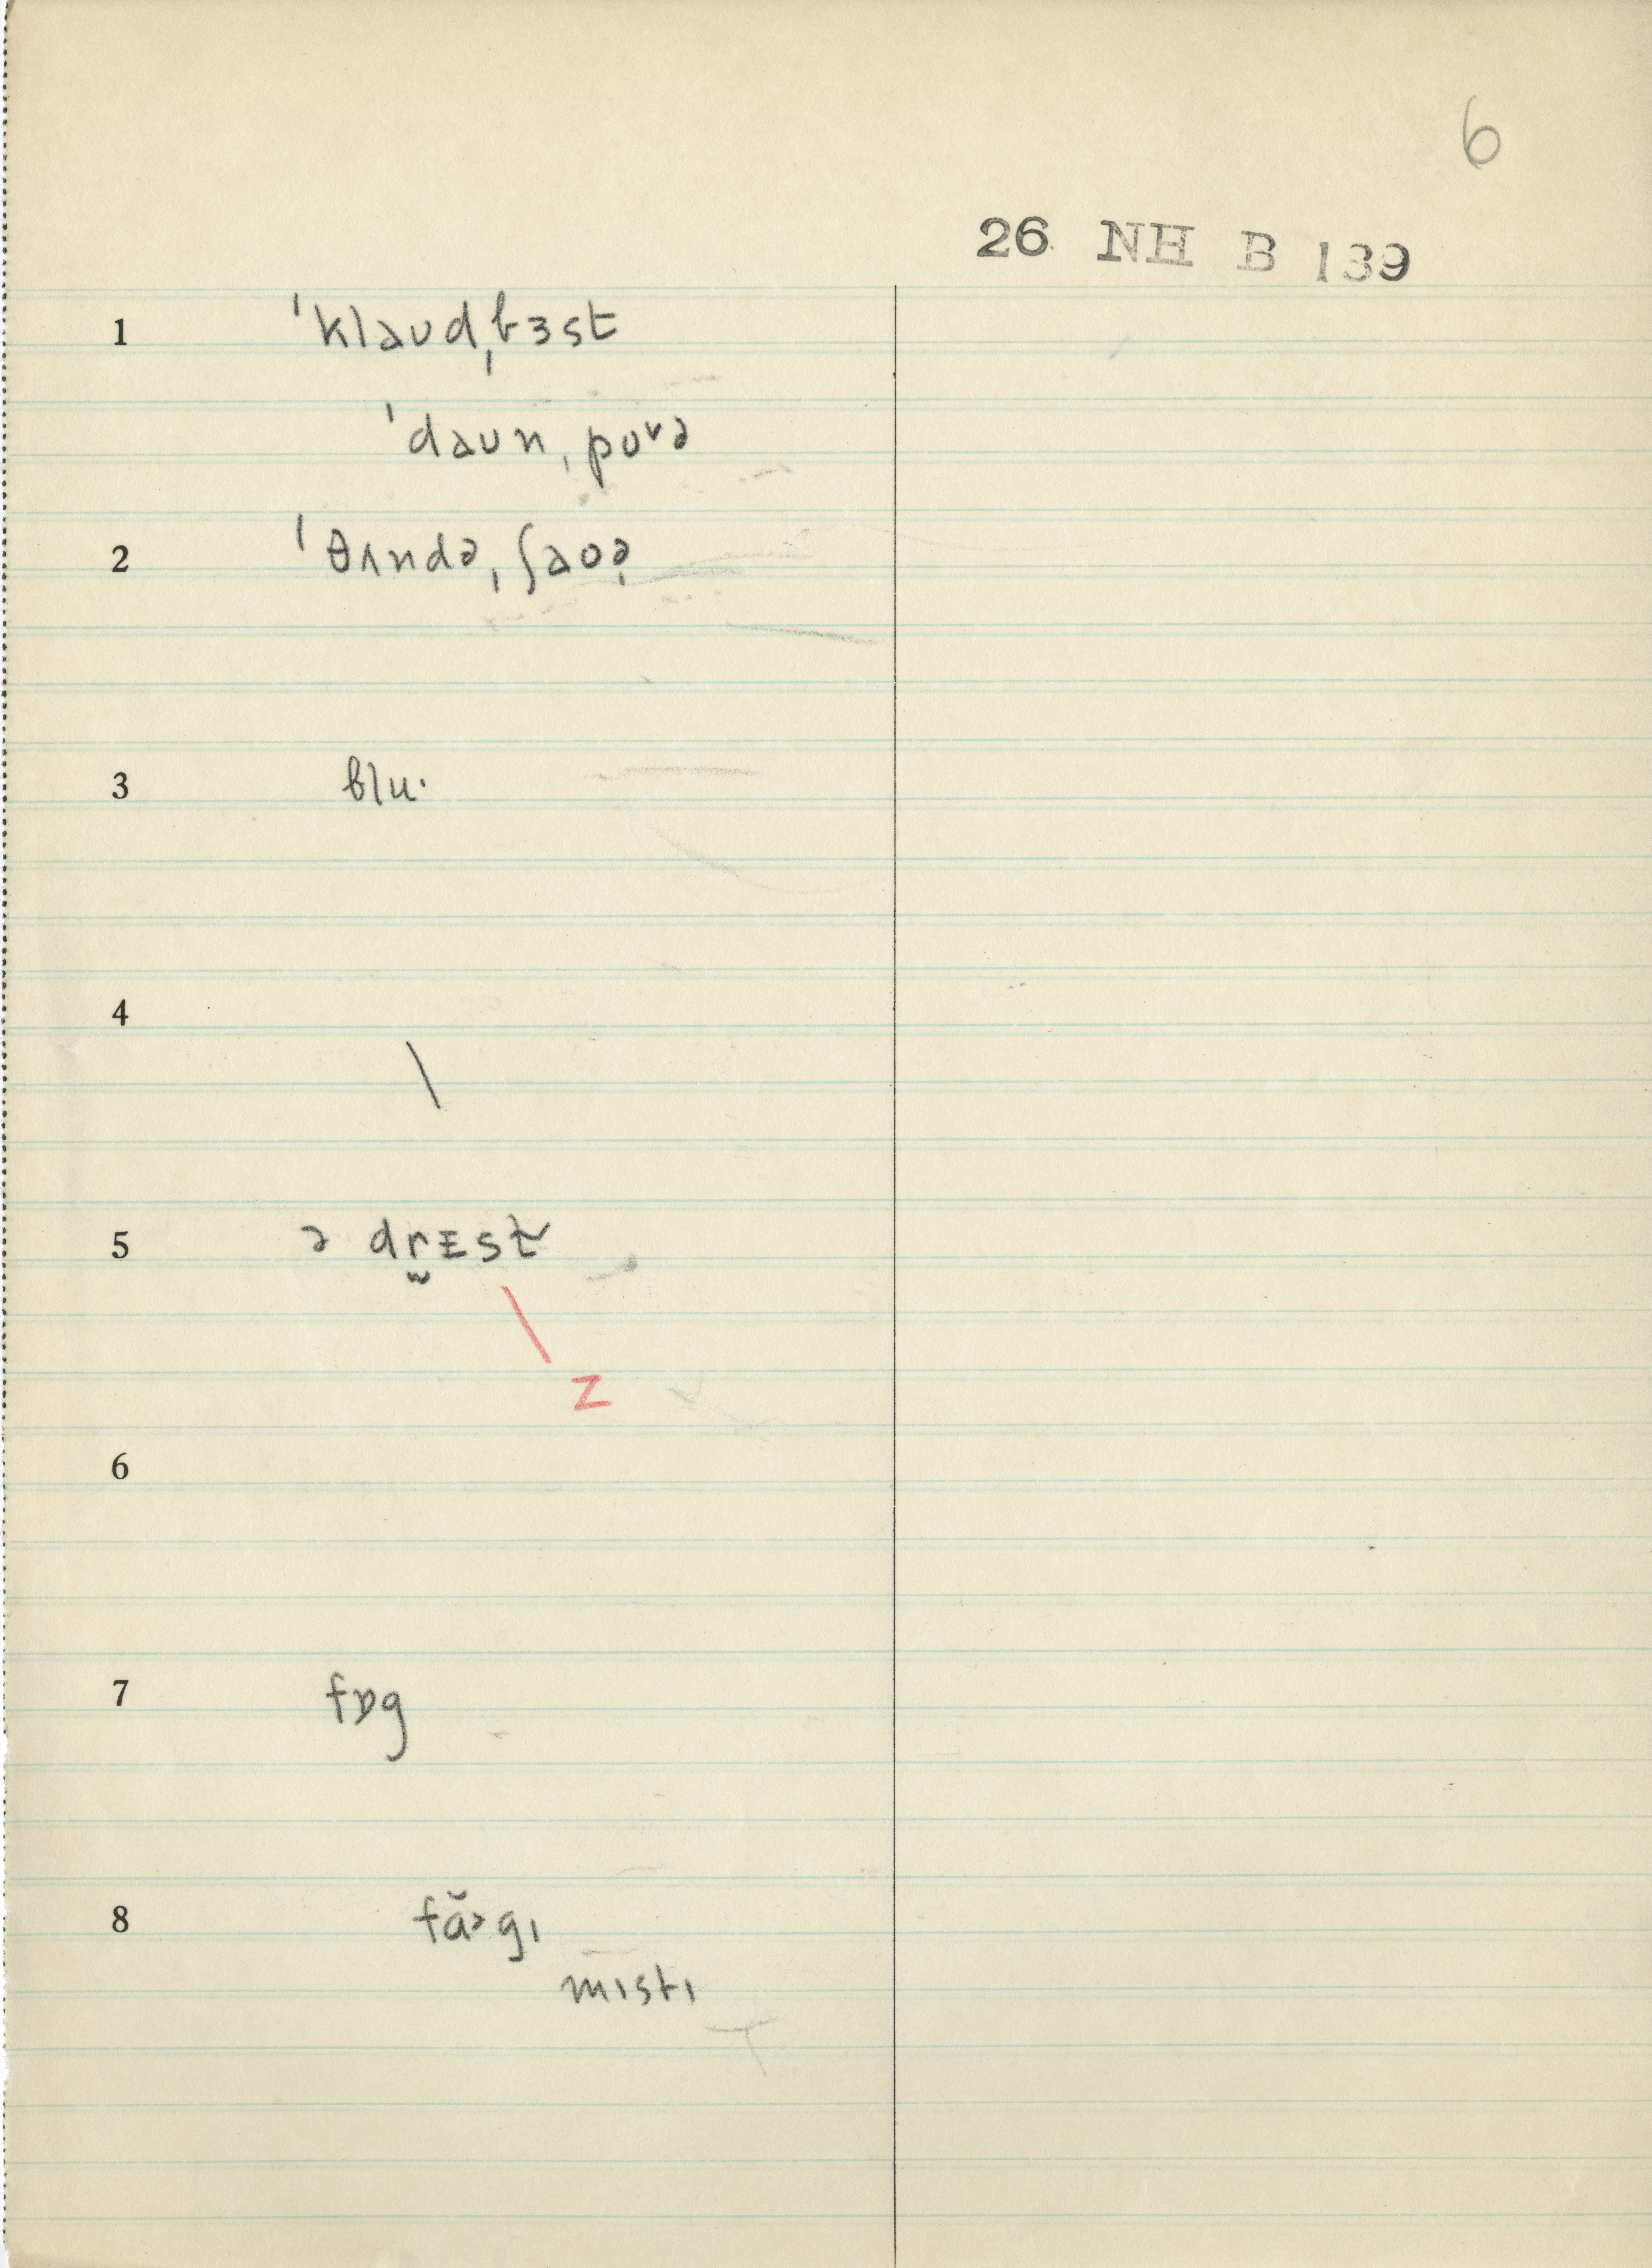 6
26 NH B 139
1 ˈklaʊdˌbɜst
ˈdaʊnˌpʊᵛə
2 ˈθʌndəˌʃaʊə̣
3 blu·
4 \
5 ə dr̯ᴇst
z
6
7 fɒg
8 fă>gɪ
mɪstɪ